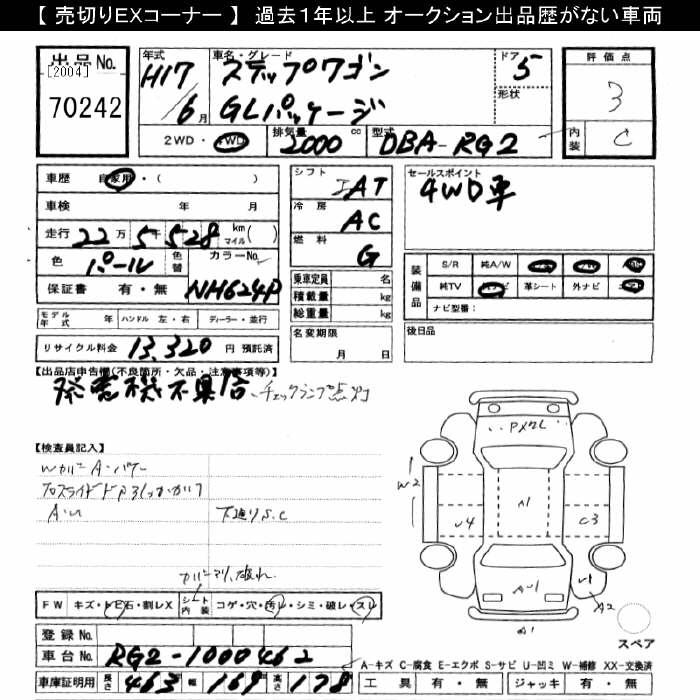 【 売切りEXコーナー 】 過去1年以上 オークション出品歴がない車両
出品No.
[2004]
70242
年式
H17/6月
車名・グレード
ステップワゴン
GLパッケージ
ドア
5
形状
評価点
3
内装
C
2WD・4WD
排気量 2000 cc
型式 DBA-RG2
車歴 自家用・( )
車検 年 月
走行 22万5千528 km マイル( )
色 パール
色替
カラーNo. NH624P
保証書 有・無
モデル年式 年 ハンドル 左・右 ディーラー・並行
リサイクル料金 13,320 円 預託済
シフト
IAT
冷房
AC
燃料
G
乗車定員 名
積載量 kg
総重量 kg
名変期限
月 日
セールスポイント
4WD車
装備品
S/R 純A/W
純TV 革シート 外ナビ
ナビ型番:
後日品
【出品店申告欄(不良箇所・欠品・注意事項等)】
発電機不具合、チェックランプ点灯
【検査員記入】
Wカバー A・バケー
A・U
下廻りS.C
カバーマリ、破れ
PXワレ
W2
U4
A1
C3
AU1
U1
A2
スペア
FW キズ・トビ石・割レX
シート内装 コゲ・穴・汚レ・シミ・破レ・スレ
登録No.
車台No. RG2-1000462
車庫証明用 長さ 463 幅 169 高さ 178
A-キズ C-腐食 E-エクボ S-サビ U-凹ミ W-補修 XX-交換済
工具 有・無 ジャッキ 有・無